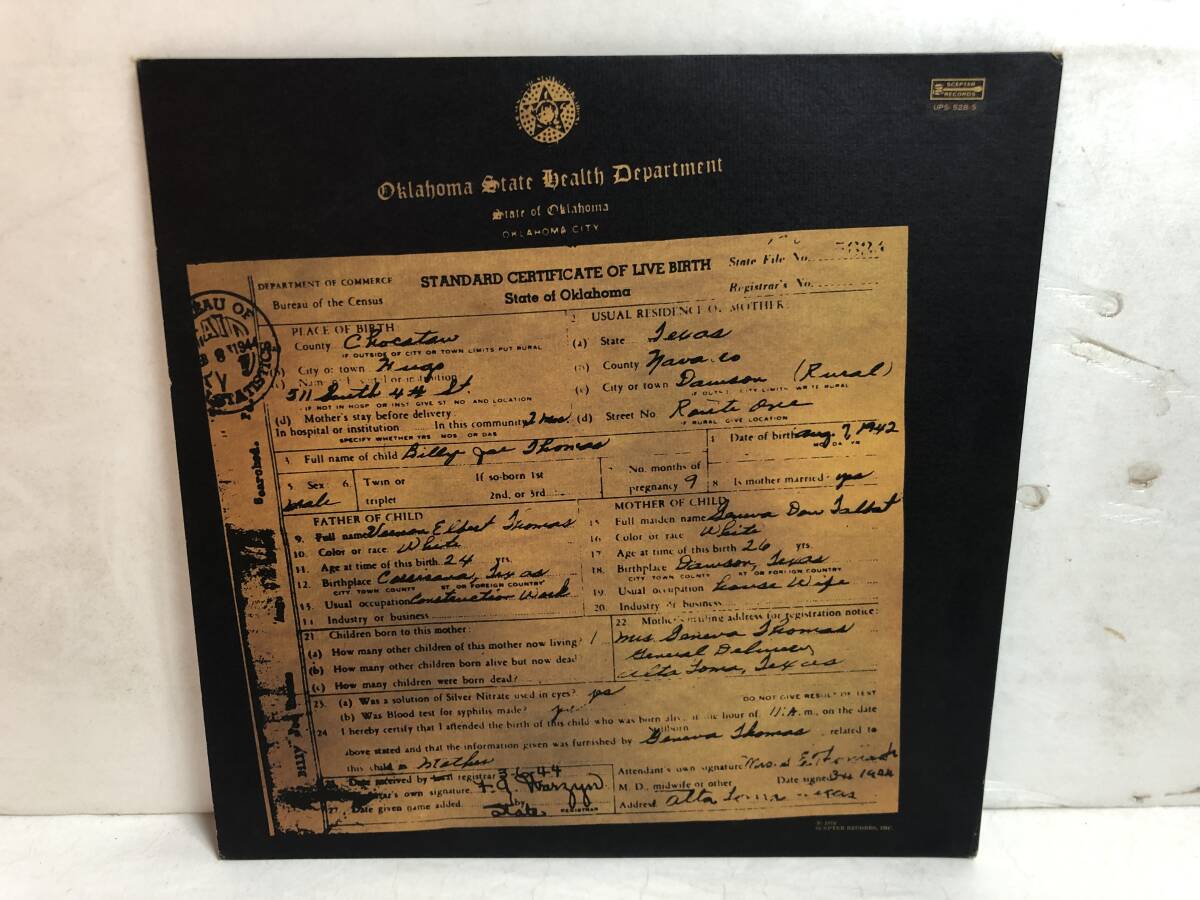 SCEPTER
RECORDS
UPS-528-S
Oklahoma State Health Department
State of Oklahoma
OKLAHOMA CITY
DEPARTMENT OF COMMERCE
Bureau of the Census
STANDARD CERTIFICATE OF LIVE BIRTH
State of Oklahoma
State File No.
Registrar's No.
BUREAU OF
1944
STATISTICS
Searched.
PLACE OF BIRTH:
County Choctaw
IF OUTSIDE OF CITY OR TOWN LIMITS PUT RURAL
City or town Hugo
511 South 4th St.
IF NOT IN HOSP OR INST GIVE ST NO AND LOCATION
(d) Mother's stay before delivery:
In hospital or institution In this community 2 mos.
SPECIFY WHETHER YRS MOS OR DAS
2 USUAL RESIDENCE OF MOTHER:
(a) State Texas
County Navarro
(c) City or town Dawson (Rural)
(d) Street No. Route One
IF RURAL GIVE LOCATION
3. Full name of child Billy Joe Thomas
4 Date of birth Aug 7, 1942
5 Sex: male 6. Twin or triplet If so-born 1st 2nd, or 3rd:
7 No. months of pregnancy 9
8 Is mother married? yes
FATHER OF CHILD
9. Full name Vernon Elbert Thomas
10. Color or race White
11. Age at time of this birth 24 yrs.
12. Birthplace Corsicana, Texas
CITY TOWN COUNTY ST OR FOREIGN COUNTRY
13. Usual occupation Construction Work
14. Industry or business
MOTHER OF CHILD
15. Full maiden name Geneva Talbat
16. Color or race White
17. Age at time of this birth 26 yrs.
18. Birthplace Dawson, Texas
CITY TOWN COUNTY ST OR FOREIGN COUNTRY
19. Usual occupation House Wife
20. Industry or business
21. Children born to this mother:
(a) How many other children of this mother now living? 1
(b) How many other children born alive but now dead
(c) How many children were born dead?
22. Mother's mailing address for registration notice:
Mrs. Geneva Thomas
General Delivery
Alta Loma, Texas
23. (a) Was a solution of Silver Nitrate used in eyes? yes
(b) Was Blood test for syphilis made? yes
DO NOT GIVE RESULT OF TEST
24 I hereby certify that I attended the birth of this child who was born alive at the hour of 11: A. m., on the date
Stillborn
above stated and that the information given was furnished by Geneva Thomas related to
this child as Mother
Date received by registrar 3-6-44
own signature
27. Date given name added by State
REGISTRAR
Attendant's own signature
M. D. midwife or other Date signed
Address Alta Loma Texas
Billy Joe Thomas
SCEPTER RECORDS, INC.